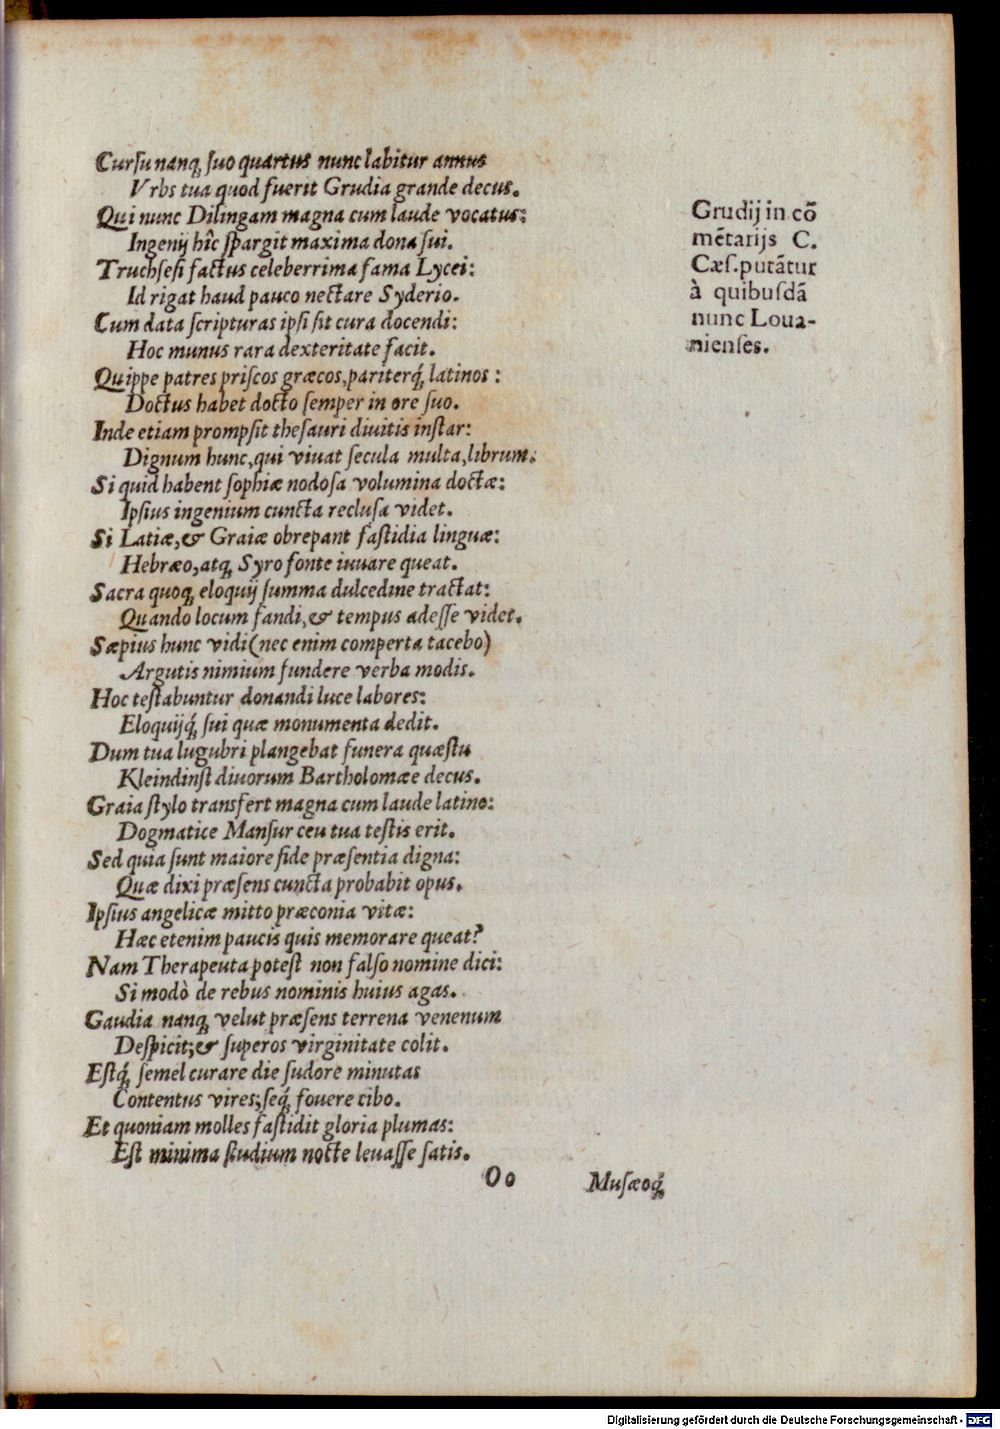 Curſu nanq́; ſuo quartus nunc labitur annus
Vrbs tua quod fuerit Grudia grande decus.
Qui nunc Dilingam magna cum laude vocatus:
Ingenij hîc ſpargit maxima dona ſui.
Truchſeſi factus celeberrima fama Lycei:
Id rigat haud pauco nectare Syderio.
Cum data ſcripturas ipſi ſit cura docendi:
Hoc munus rara dexteritate facit.
Quippe patres priſcos græcos, pariterq́; latinos:
Doctus habet docto ſemper in ore ſuo.
Inde etiam prompſit theſauri diuitis inſtar:
Dignum hunc, qui viuat ſecula multa, librum.
Si quid habent ſophiæ nodoſa volumina doctæ:
Ipſius ingenium cuncta recluſa videt.
Si Latiæ, & Graiæ obrepant faſtidia linguæ:
Hebræo, atq; Syro fonte iuuare queat.
Sacra quoq; eloquij ſumma dulcedine tractat:
Quando locum fandi, & tempus adeſſe videt.
Sæpius hunc vidi (nec enim comperta tacebo)
Argutis nimium fundere verba modis.
Hoc teſtabuntur donandi luce labores:
Eloquijq́; ſui quæ monumenta dedit.
Dum tua lugubri plangebat funera quæſtu
Kleindinſt diuorum Bartholomæe decus.
Graia ſtylo transfert magna cum laude latino:
Dogmatice Manſur ceu tua teſtis erit.
Sed quia ſunt maiore fide præſentia digna:
Quæ dixi præſens cuncta probabit opus.
Ipſius angelicæ mitto præconia vitæ:
Hæc etenim paucis quis memorare queat?
Nam Therapeuta poteſt non falſo nomine dici:
Si modò de rebus nominis huius agas.
Gaudia nanq; velut præſens terrena venenum
Deſpicit; & ſuperos virginitate colit.
Eſtq́; ſemel curare die ſudore minutas
Contentus vires; ſeq́; fouere cibo.
Et quoniam molles faſtidit gloria plumas:
Eſt minima ſtudium nocte leuaſſe ſatis.
Oo Muſæoq́;
Grudij in cõ
mẽtarijs C.
Cæſ. putãtur
à quibuſdã
nunc Loua-
nienſes.
Digitalisierung gefördert durch die Deutsche Forschungsgemeinschaft - DFG